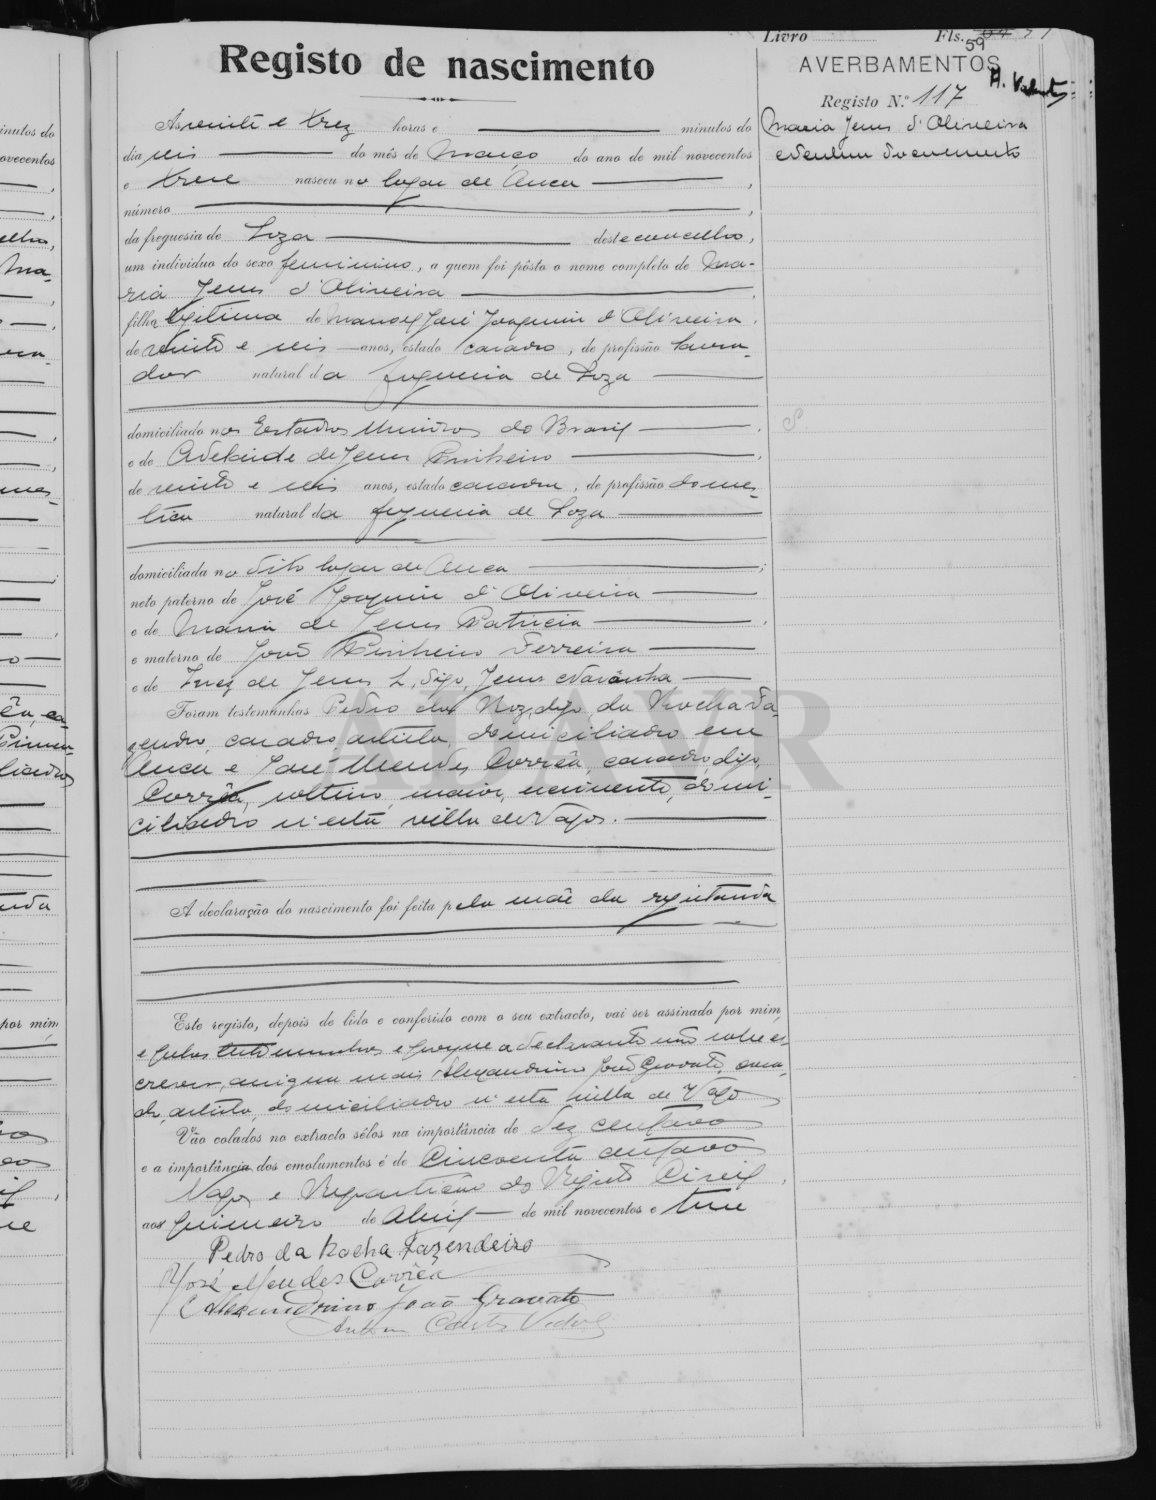 Livro Fls.
59
AVERBAMENTOS
Registo N.º 117
Maria Jesus d'Oliveira
nenhum documento
Registo de nascimento
As vinte e trez horas e minutos do
dia seis do mês de Março do ano de mil novecentos
e treze nasceu no logar de Ouca
número
da freguesia de Soza deste concelho,
um individuo do sexo feminino, a quem foi pôsto o nome completo de Ma-
ria Jesus d'Oliveira
filha legitima de Manoel José Joaquim d'Oliveira,
de vinte e seis anos, estado casado, de profissão lavra-
dor natural da freguesia de Soza
domiciliado nos Estados Unidos do Brasil
e de Adelaide de Jesus Pinheiro
de vinte e seis anos, estado casada, de profissão domes-
tica natural da freguesia de Soza
domiciliada no dito logar de Ouca
neto paterno de José Joaquim d'Oliveira
e de Maria de Jesus Patricia
e materno de João Pinheiro Ferreira
e de Inez de Jesus L, digo, Jesus
Foram testemunhas Pedro da Roz, digo da Rocha Fa-
zendro, casado, artista, domiciliado em
Ouca e José Mendes Corrêa, casado, digo,
Corrêa, solteiro, maior, domi-
ciliado n'esta villa de Vagos.
A declaração do nascimento foi feita pela mãe da registanda
Este registo, depois de lido e conferido com o seu extracto, vai ser assinado por mim,
e pelas testemunhas e porque a declarante não sabe es-
crever, assigna mais Alexandrino João Gravato, casa-
do, artista, domiciliado n'esta villa de Vagos
Vão colados no extracto sêlos na importância de dez centavos
e a importância dos emolumentos é de cincoenta centavos
Vagos e Repartição do Registo Civil,
aos primeiro de Abril de mil novecentos e treze
Pedro da Rocha Fazendeiro
José Mendes Corrêa
Alexandrino João Gravato
ADAVR